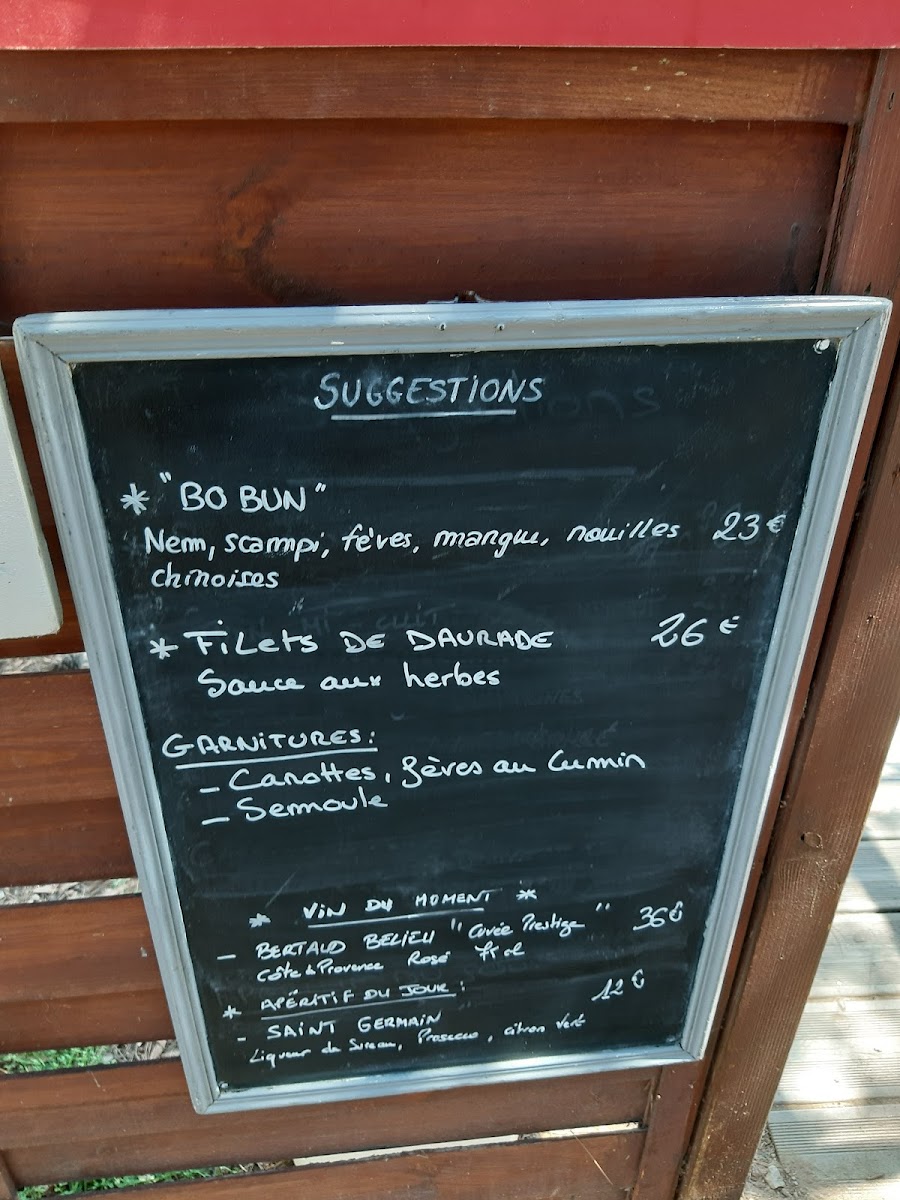 SUGGESTIONS
* "BO BUN"
Nem, scampi, fèves, mangue, nouilles 23€
chinoises
* FILETS DE DAURADE 26€
Sauce aux herbes
GARNITURES:
- Carottes, fèves au Cumin
- Semoule
* VIN DU MOMENT *
- BERTAUD BELIEU "Cuvée Prestige" 36€
Côte de Provence Rosé 75 cl
* APÉRITIF DU JOUR: 12€
- SAINT GERMAIN
Liqueur de Sureau, Prosecco, citron vert